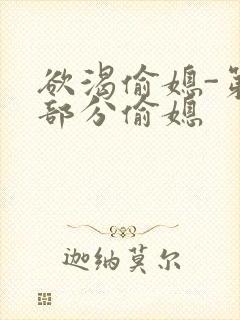 欲渴偷媳-第
部分偷媳
迦纳莫尔